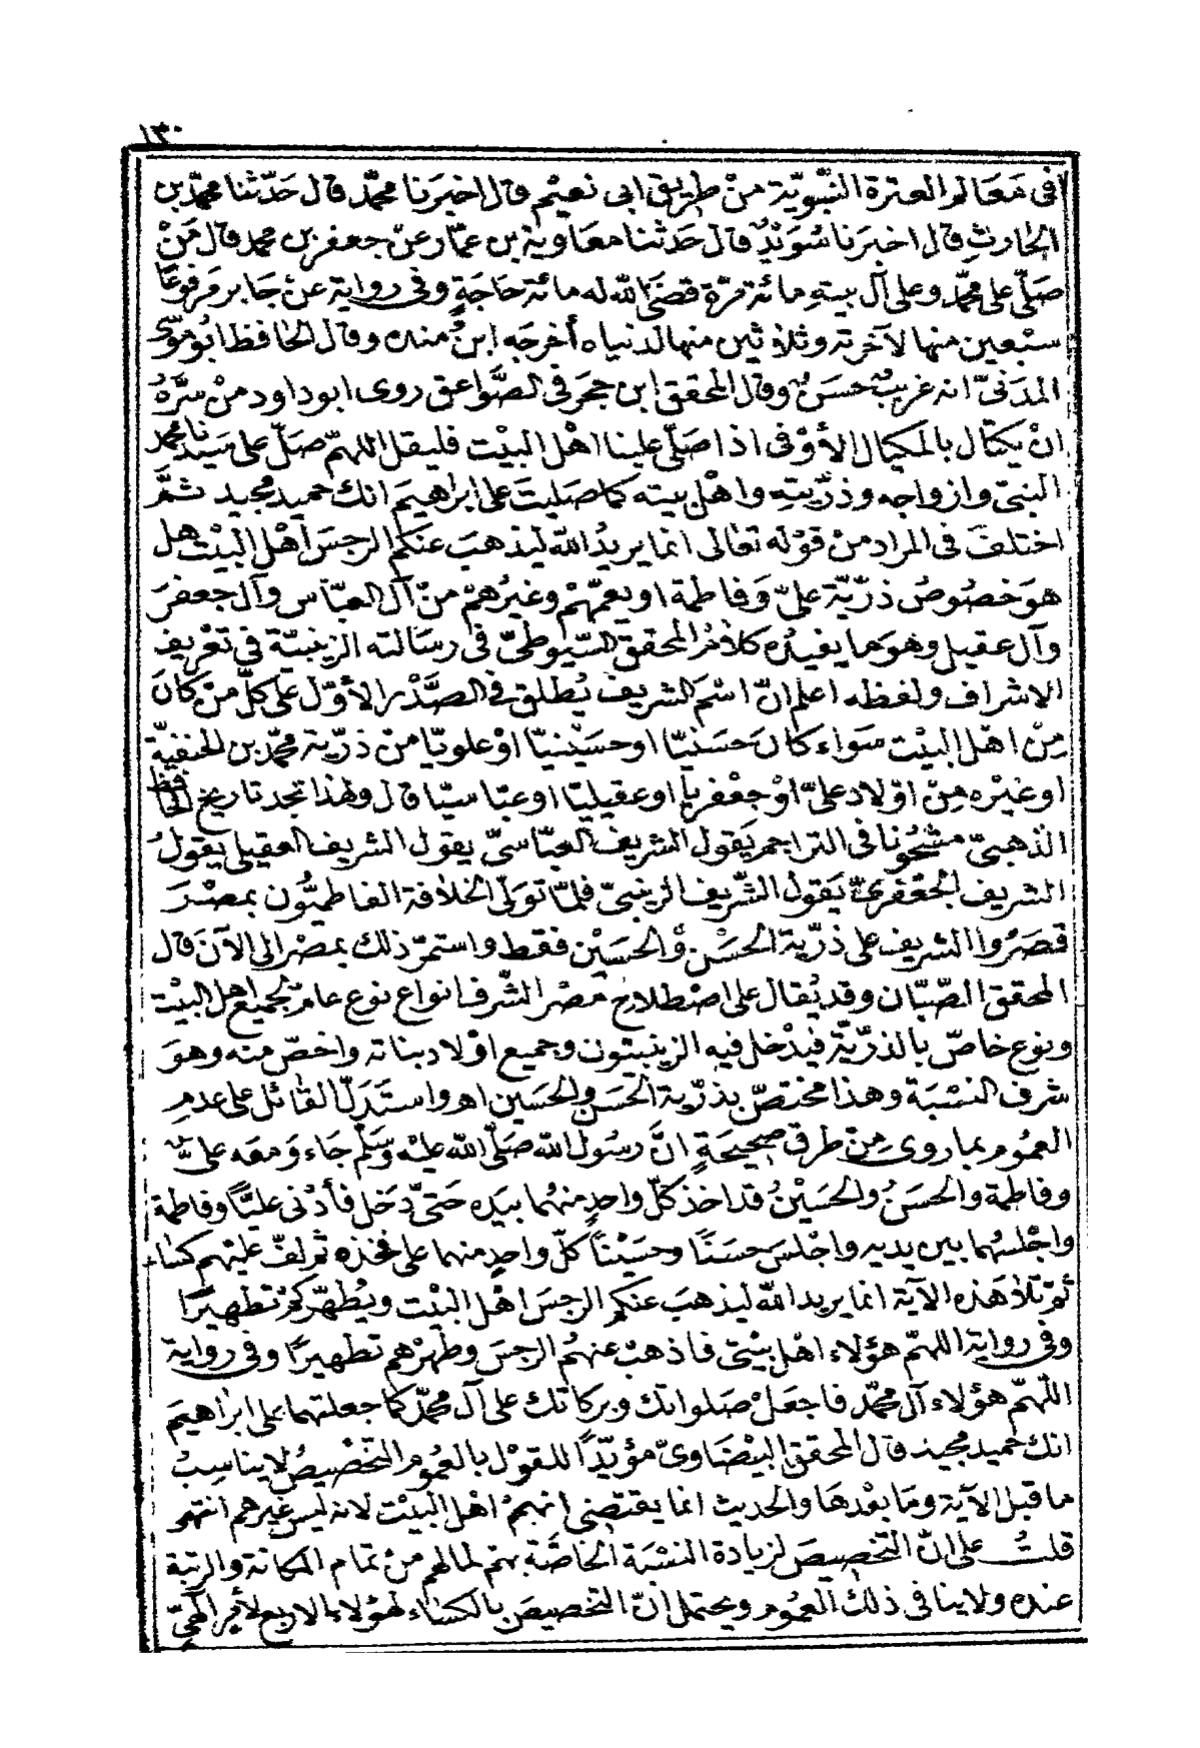 ١٣٠
فى مَعَالم العترة النّبويّة منْ طريق ابى نعيْم قال اخبَرَنا محمّد قال حَدّثنا محمّد بن
الحارثِ قال اخبَرنا سُوَيْدٌ قال حَدثنا معَاوية بن عمّار عنْ جعفر بن محمد قال مَنْ
صَلّى على محمّد وعلى آل بيته مائة مرّة قضَى الله له مائة حاجَةٍ وفى رواية عنْ جَابر مَرفوعًا
سبْعين منها لآخرته وثلاثين منها لدنياه أخرجَه ابنُ منده وقال الحافظ ابُو موسى
المدَنىّ انه غريبٌ حسَنٌ وقال المحقق ابن حجَر فى الصَّواعق روى ابو داود منْ سَرَّهُ
انْ يكتال بالمكيال الأوْفى اذا صَلّى علينا اهْل البيْت فليقل اللهمّ صَلّ على سَيّدنا محمد
النبىّ وازواجه وذرّيتِه واهْل بيته كما صَليتَ على ابراهيمَ انك حميد مجيد ثمَّ
اختلفَ فى المراد منْ قوْله تعالى انما يريدُ الله ليذهبَ عنكم الرجسَ اهْل البيْت هل
هوَ خصُوصُ ذرّيّة علىّ وَفاطمة او يعمّهمْ وغيْرهمْ منْ آل العبّاس وآل جعفرَ
وآل عقيل وهوَ ما يفيدُه كلامُ المحقق السّيوطىّ فى رسَالته الزينبيّة فى تعْريف
الاشراف ولفظه اعلم انّ اسْمَ الشريف يُطلق فى الصَّدْر الأوّل على كلّ منْ كانَ
مِنْ اهْل البيْت سَواء كانَ حسَنيّا او حسَيْنيّا اوْ علويّا منْ ذرّية محمّد بن الحنفيّة
او غيْره مِنْ اوْلاد علىّ اوْ جعْفريّا او عقيليّا او عبّاسيّا قال ولهذا تجد تاريخ الحافظ
الذهبىّ مشحُونا فى التراجم يَقول الشريف العبّاسىّ يقول الشريف العقيلى يَقولُ
الشريف الجعْفرىّ يَقول الشّريف الزينبىّ فلمّا توَلّى الخلافة الفاطميُّون بمصْرَ
قصَرُوا الشريف على ذرّية الحسَنْ وَالحسَيْن فقط واستمرّ ذلك بمصْر الى الآنَ قال
المحقق الصّبّان وقد يُقال على اصْطلاح مصْر الشّرف انواع نوع عامّ لجميع اهل البيْت
ونوع خاصّ بالذرّيّة فيَدْخل فيه الزينبيّون وجميع اوْلاد بناته واخصّ منه وهوَ
شرف النسْبَة وهذا مختصّ بذرّية الحسَن والحسَين اهـ واستَدَلّ القائل على عدم
العمُوم بما روى مِنْ طرق صحيحَةٍ انَّ رسُول الله صَلّى الله عليْه وَسَلّم جَاء وَمعَه علىٌّ
وفاطمة والحسَنُ والحسَيْنُ قد اخذ كلّ واحدٍ منهُما بيَده حَتّى دَخل فأدْنى عليًّا وفاطمة
واجْلسَهُما بين يديه واجْلسَ حسَنًا وحسَيْنًا كلّ واحدٍ منهما على فخذه ثم لفّ عليْهم كساء
ثم تلا هَذه الآية انما يريد الله ليذهبَ عنكم الرجسَ اهْل البيْت ويُطهّركمْ تطهيرًا
وفى رواية اللهمّ هؤلاء اهل بيْتى فاذهبْ عنهُم الرجسَ وطهّرْهم تطهيرًا وفى رواية
اللّهمّ هؤلاء آل محمّد فاجعَلْ صَلواتك وبركاتك على آل محمّد كما جعلتهما على ابراهيمَ
انك حميد مجيد قال المحقق البيْضَاوىّ مؤيّدًا للقوْل بالعمُوم التخصيصُ لا يناسبُ
ما قبل الآية وما بعْدهَا والحديث انما يقتضى انهمْ اهْل البيْت لا انه ليس غيْرهم انتهى
قلتُ على انّ التخصيصَ لزيادة النسْبَة الخاصَّة بهم لما لهم منْ تمام المكانة والرتبة
عنده ولا ينافى ذلكَ العمُوم ويحتمل انّ التخصيصَ بالكسَاء لهؤلاء الاربع لأمْر الهىّ